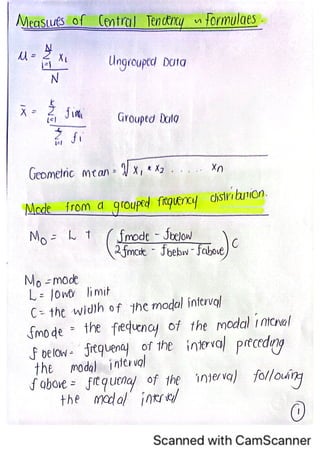 Measures of Central Tendency ~ Formulaes.
μ = N Σ i=1 xi
N
Ungrouped Data
x̄ = k Σ i=1 fimi
k Σ i=1 fi
Grouped Data
Geometric mean = n√ x1 * x2 ..... xn
Mode from a grouped frequency distribution.
Mo = L + ( fmode - fbelow / 2fmode - fbelow - fabove ) C
Mo = mode
L = lower limit
C = the width of the modal interval
fmode = the frequency of the modal interval
f below = frequency of the interval preceding
the modal interval
f above = frequency of the interval following
the modal interval
1
Scanned with CamScanner